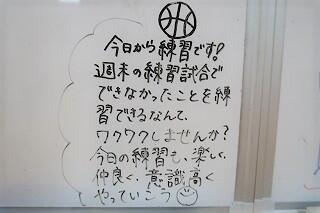 今日から練習です!
週末の練習試合で
できなかったことを練
習できるなんて、
ワクワクしませんか?
今日の練習も、楽しく、
仲良く、意識高く
やっていこう